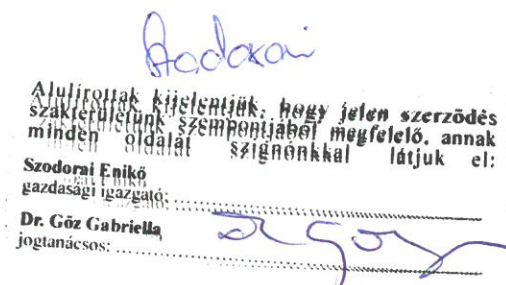 Szodorai
Alulírottak kijelentjük, hogy jelen szerződés
szakterületünk szempontjából megfelelő, annak
minden oldalát szignónkkal látjuk el:
Szodorai Enikő
gazdasági igazgató:
Dr. Göz Gabriella
jogtanácsos:
Dr Göz